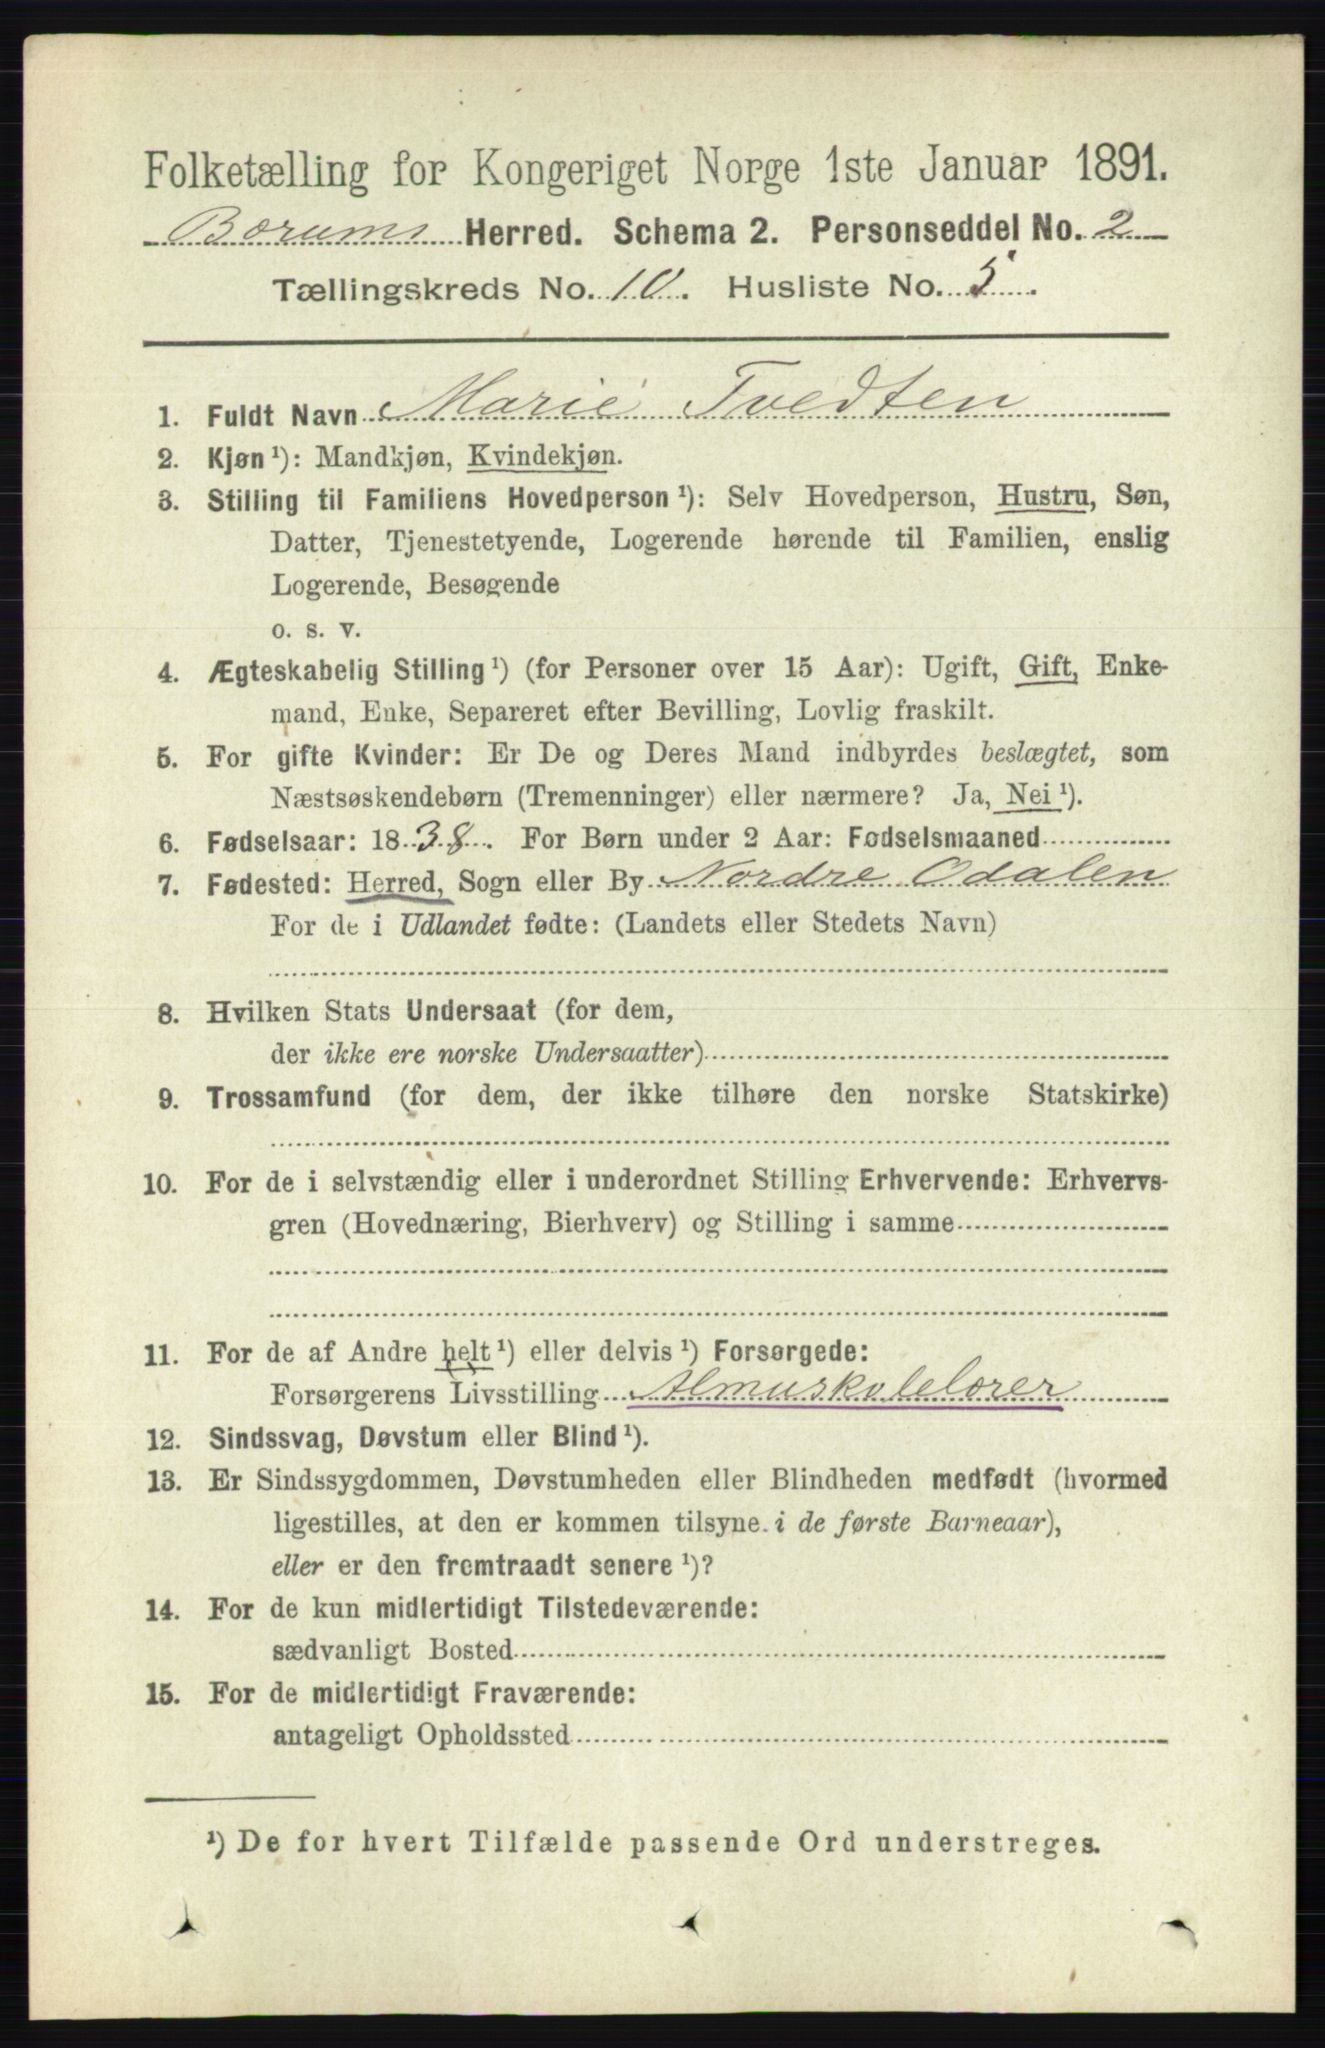 Folketælling for Kongeriget Norge 1ste Januar 1891.
Bærums Herred. Schema 2. Personseddel No. 2
Tællingskreds No. 10. Husliste No. 5.
1. Fuldt Navn Marie Tvedten
2. Kjøn ¹): Mandkjøn, Kvindekjøn.
3. Stilling til Familiens Hovedperson ¹): Selv Hovedperson, Hustru, Søn,
Datter, Tjenestetyende, Logerende hørende til Familien, enslig
Logerende, Besøgende
o. s. v.
4. Ægteskabelig Stilling ¹) (for Personer over 15 Aar): Ugift, Gift, Enke-
mand, Enke, Separeret efter Bevilling, Lovlig fraskilt.
5. For gifte Kvinder: Er De og Deres Mand indbyrdes beslægtet, som
Næstsøskendebørn (Tremenninger) eller nærmere? Ja, Nei ¹).
6. Fødselsaar: 1838. For Børn under 2 Aar: Fødselsmaaned
7. Fødested: Herred, Sogn eller By Nordre Odalen
For de i Udlandet fødte: (Landets eller Stedets Navn)
8. Hvilken Stats Undersaat (for dem,
der ikke ere norske Undersaatter)
9. Trossamfund (for dem, der ikke tilhøre den norske Statskirke)
10. For de i selvstændig eller i underordnet Stilling Erhvervende: Erhvervs-
gren (Hovednæring, Bierhverv) og Stilling i samme
11. For de af Andre helt ¹) eller delvis ¹) Forsørgede:
Forsørgerens Livsstilling Almuskolelærer
12. Sindssvag, Døvstum eller Blind ¹).
13. Er Sindssygdommen, Døvstumheden eller Blindheden medfødt (hvormed
ligestilles, at den er kommen tilsyne i de første Barneaar),
eller er den fremtraadt senere ¹)?
14. For de kun midlertidigt Tilstedeværende:
sædvanligt Bosted
15. For de midlertidigt Fraværende:
antageligt Opholdssted
¹) De for hvert Tilfælde passende Ord understreges.